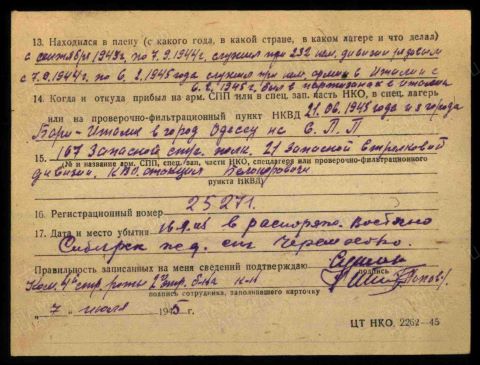 13. Находился в плену (с какого года, в какой стране, в каком лагере и что делал)
с сентября 1943г. по 7.9.1944г. служил при 232 нем. дивизии рядовым
с 7.9.1944г. по 6.2.1945 года служил при нем. армии в Италии с
6.2.1945г. был в партизанах в Италии
14. Когда и откуда прибыл на арм. СПП или в спец. зап. часть НКО, в спец. лагерь
или на проверочно-фильтрационный пункт НКВД 21.06.1945 года из города
Бари - Италия в город Одессу на С.П.П
15. 167 Запасной стр. полк. 21 Запасной стрелковой
(№ и название арм. СПП, спец. зап. части НКО, спецлагеря или проверочно-фильтрационного
дивизии,
пункта НКВД)
16. Регистрационный номер 25271.
17. Дата и место убытия 16.9.45 в распоряж. Восточно
Сибирск жел. ст. Черемхово.
Правильность записанных на меня сведений подтверждаю
подпись
Ком. стр. роты 2 стр. б-на к-н Попов
подпись сотрудника, заполнявшего карточку
„ 7 " июля 1945 г.
ЦТ НКО. 2262—45